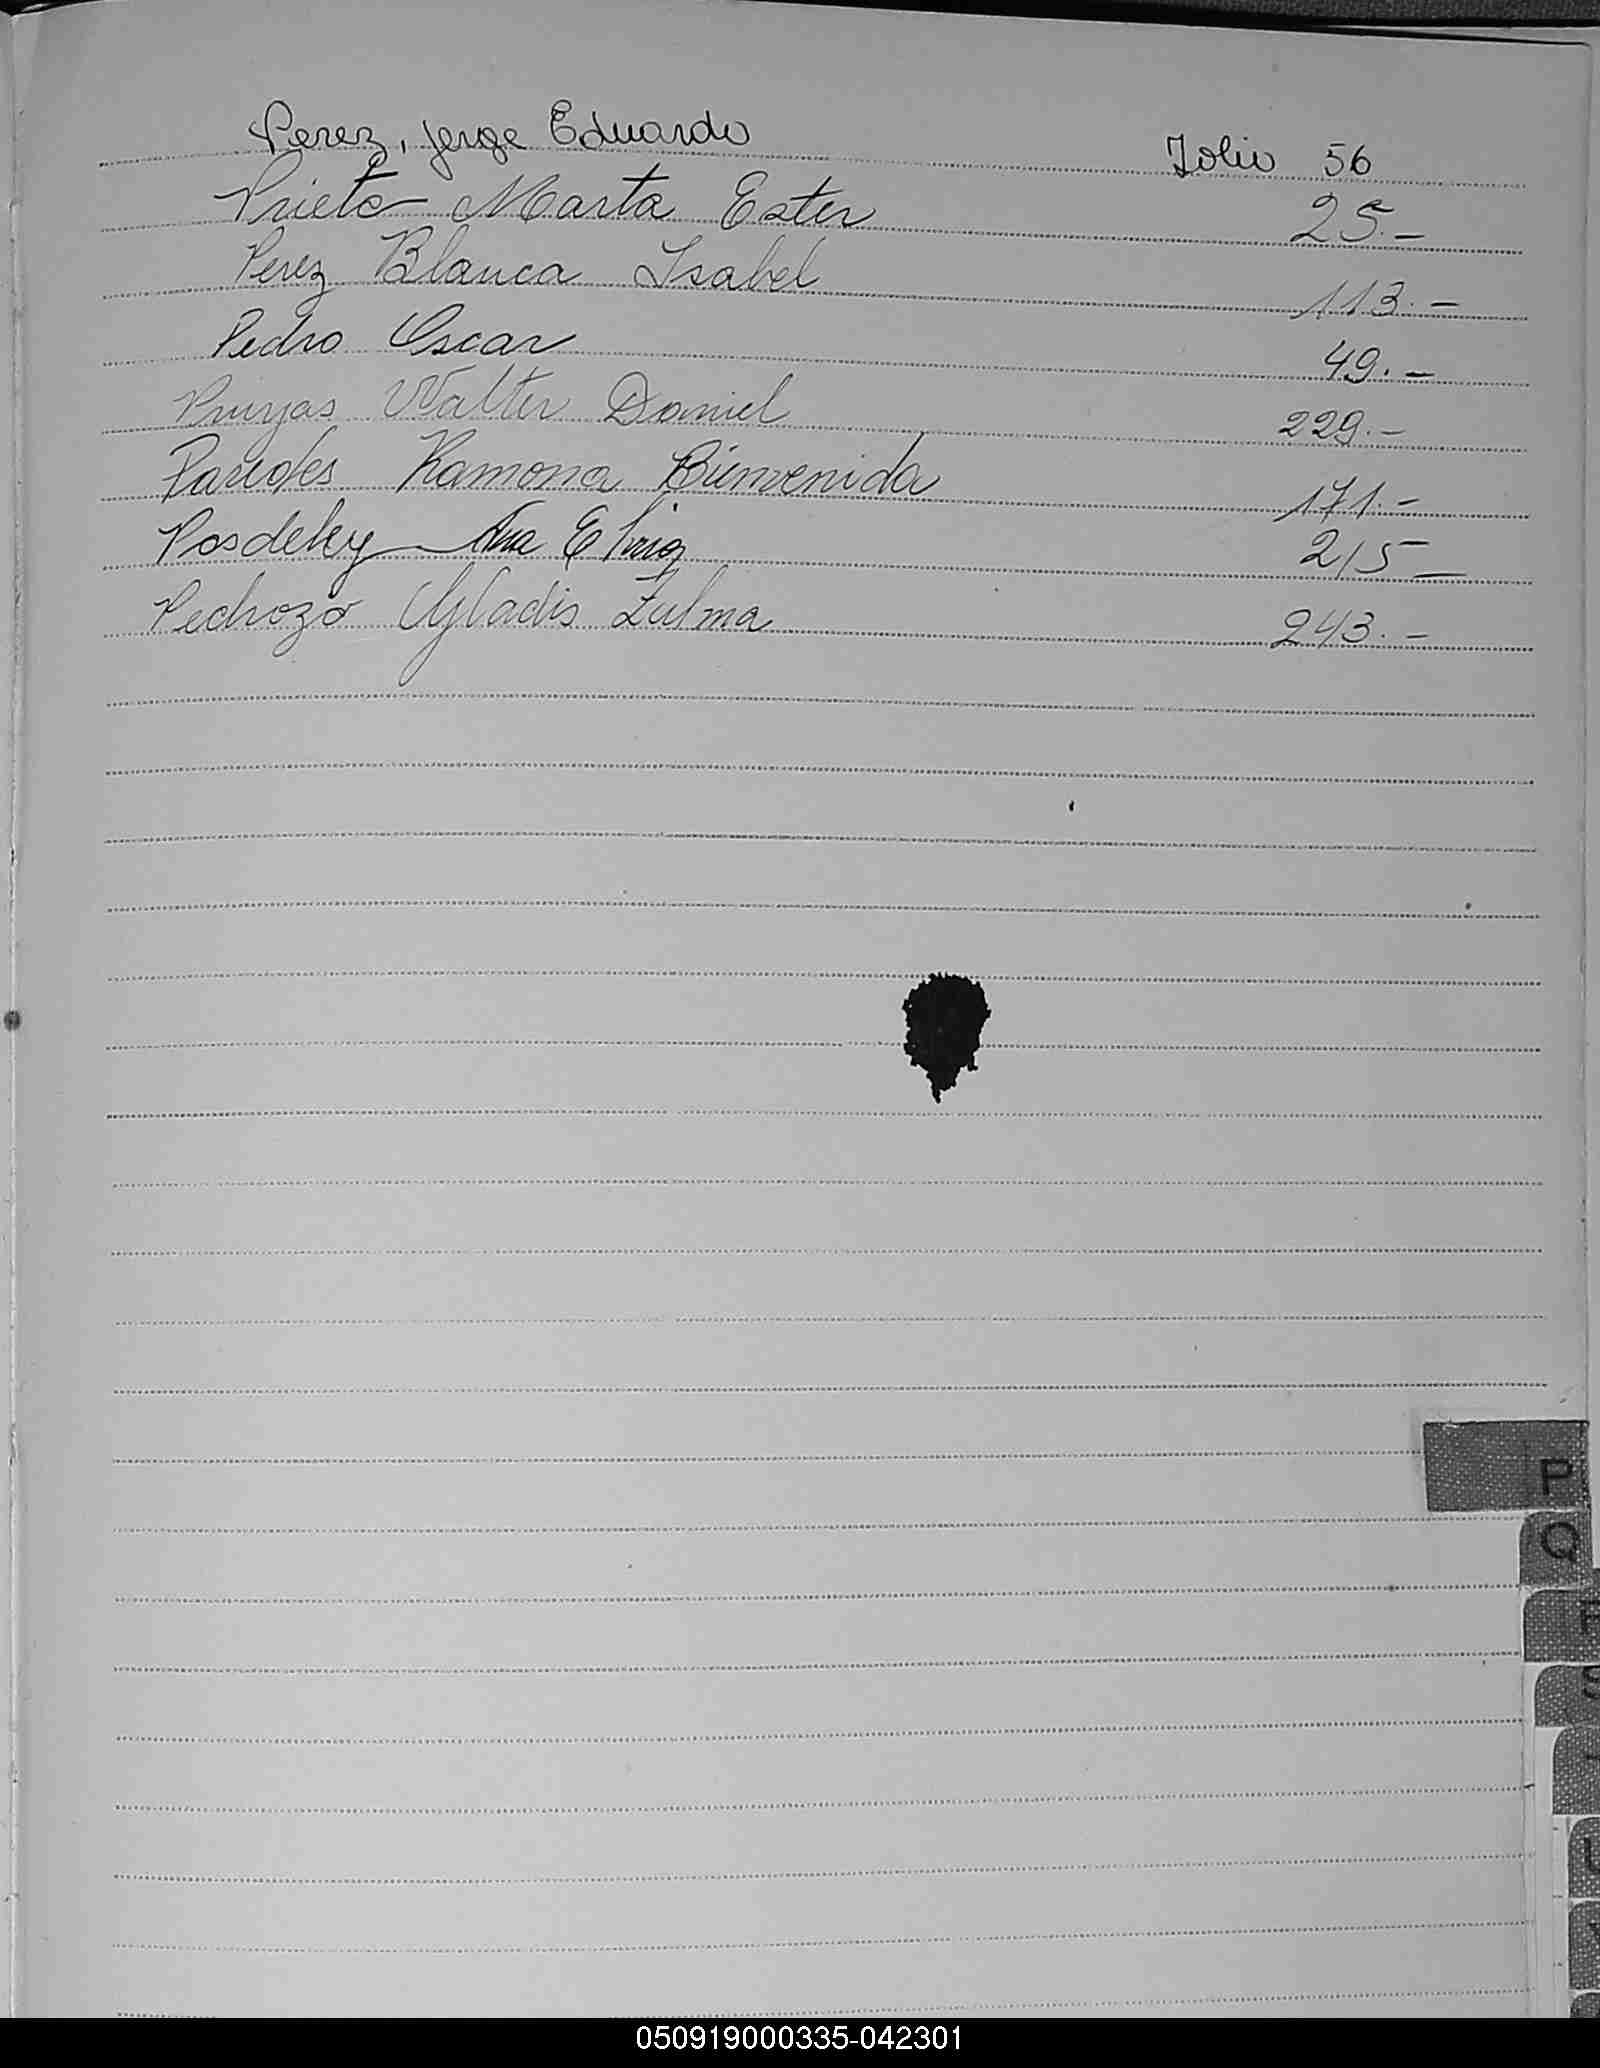 Perez, Jorge Eduardo Folio 56
Prieto Marta Ester 25.-
Perez Blanca Isabel 113.-
Pedro Oscar 49.-
Walter Daniel 229.-
Paredes Ramona Bienvenida 171.-
Posdeley Ana 215-
Pedrozo Gladis Zulma 243.-
P
Q
S
U
050919000335-042301